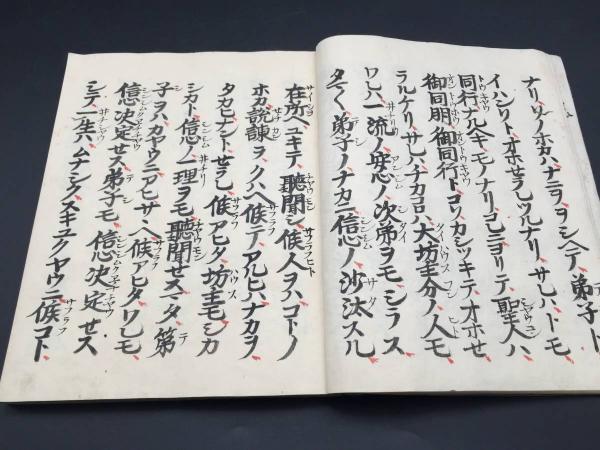 ナリソノホカハナニヲヲシヘテ弟子ト
イハンソトオホセラレツルナリサレハトモ
同行ナルヘキモノナリコレニヨリテ聖人ハ
御同朋御同行トコソカシツキテオホセ
ラレケリサレハチカコロハ大坊主分ノ人モ
ワレハ一流ノ安心ノ次第ヲモシラス
タマ〱弟子ノナカニ信心ノ沙汰スル
在所ヘユキテ聴聞シ候人ヲハコトノ
ホカ説諫ヲクハヘ候テアルヒハナカヲ
タカヒナントセラレ候アヒタ坊主モシカ
シカト信心ノ一理ヲモ聴聞セスマタ弟
子ヲハカヤウニアヒサヽヘ候アヒタワレモ
信心決定セス弟子モ信心決定セス
シテ一生ハムナシクスキユクヤウニ候コト